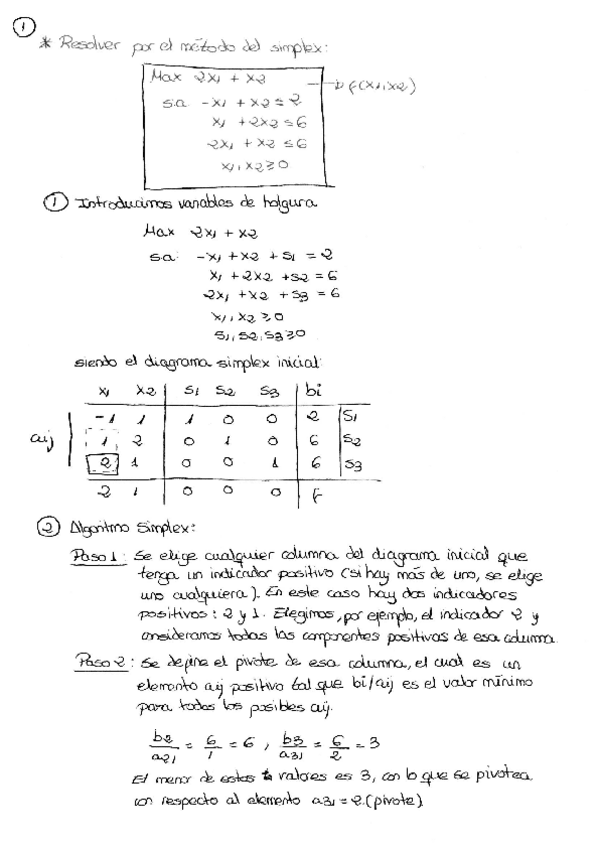 1
* Resolver por el método del simplex:
Max 2x1 + x2 → f(x1,x2)
s.a -x1 + x2 ≤ 2
x1 + 2x2 ≤ 6
2x1 + x2 ≤ 6
x1, x2 ≥ 0
① Introducimos variables de holgura
Max 2x1 + x2
s.a: -x1 + x2 + s1 = 2
x1 + 2x2 + s2 = 6
2x1 + x2 + s3 = 6
x1, x2 ≥ 0
s1, s2, s3 ≥ 0
siendo el diagrama simplex inicial:
x1 x2 s1 s2 s3 bi
-1 1 1 0 0 2 s1
aij 1 2 0 1 0 6 s2
2 1 0 0 1 6 s3
2 1 0 0 0 f
② Algoritmo Simplex:
Paso 1: Se elige cualquier columna del diagrama inicial que
tenga un indicador positivo (si hay más de uno, se elige
uno cualquiera). En este caso hay dos indicadores
positivos: 2 y 1. Elegimos, por ejemplo, el indicador 2 y
consideramos todas las componentes positivas de esa columna.
Paso 2: Se define el pivote de esa columna, el cual es un
elemento aij positivo tal que bi/aij es el valor mínimo
para todos los posibles aij.
b2/a21 = 6/1 = 6, b3/a31 = 6/2 = 3
El menor de estos valores es 3, con lo que se pivotea
con respecto al elemento a31 = 2. (pivote)